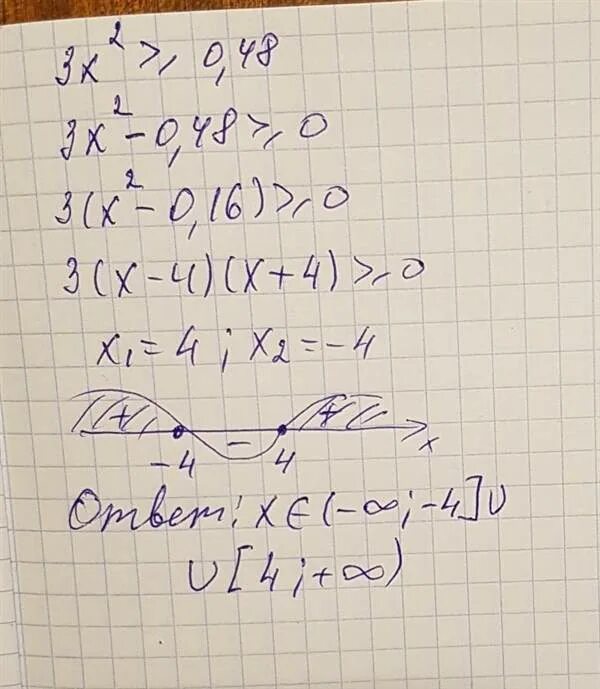 3x² ≥ 0,48
3x² - 0,48 ≥ 0
3(x² - 0,16) ≥ 0
3(x - 4)(x + 4) ≥ 0
x₁ = 4 ; x₂ = -4
+ - + x
-4 4
Ответ: x ∈ (-∞; -4] ∪
∪ [4; +∞)